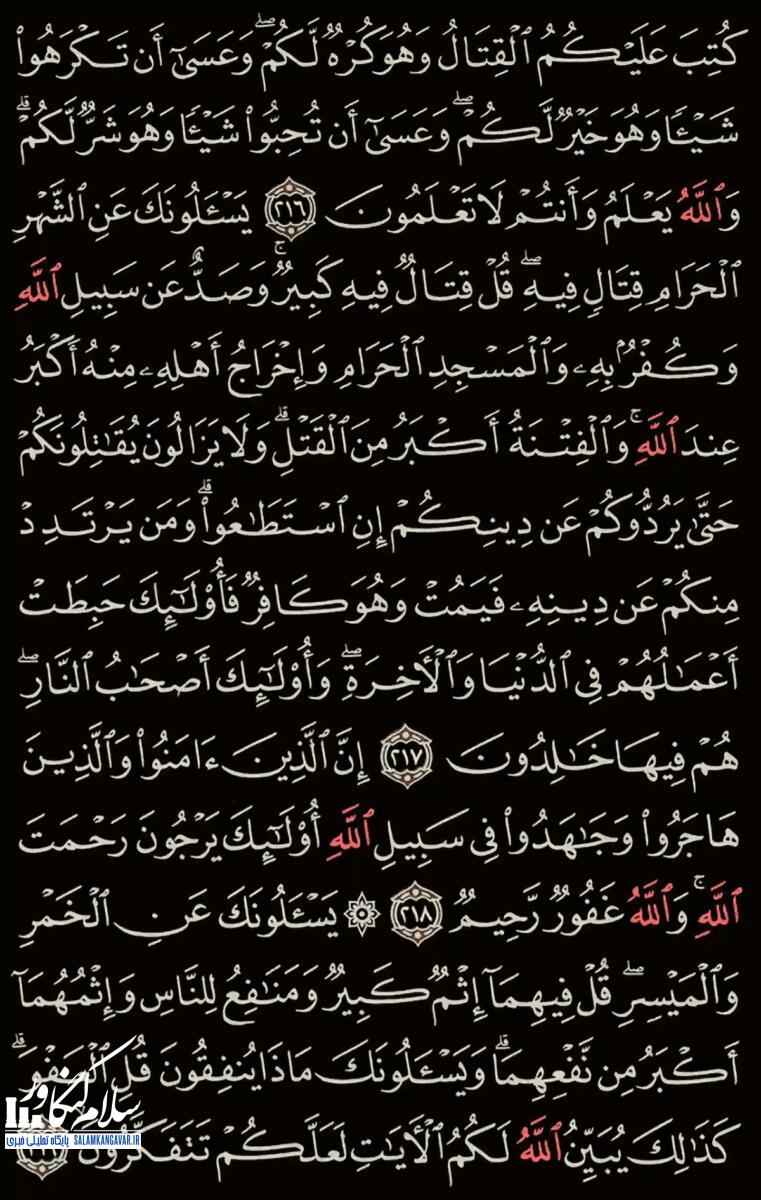 كُتِبَ عَلَيْكُمُ ٱلْقِتَالُ وَهُوَ كُرْهٌ لَّكُمْ ۖ وَعَسَىٰٓ أَن تَكْرَهُوا۟
شَيْـًٔا وَهُوَ خَيْرٌ لَّكُمْ ۖ وَعَسَىٰٓ أَن تُحِبُّوا۟ شَيْـًٔا وَهُوَ شَرٌّ لَّكُمْ ۗ
وَٱللَّهُ يَعْلَمُ وَأَنتُمْ لَا تَعْلَمُونَ ٢١٦ يَسْـَٔلُونَكَ عَنِ ٱلشَّهْرِ
ٱلْحَرَامِ قِتَالٍ فِيهِ ۖ قُلْ قِتَالٌ فِيهِ كَبِيرٌ ۚ وَصَدٌّ عَن سَبِيلِ ٱللَّهِ
وَكُفْرٌۢ بِهِۦ وَٱلْمَسْجِدِ ٱلْحَرَامِ وَإِخْرَاجُ أَهْلِهِۦ مِنْهُ أَكْبَرُ
عِندَ ٱللَّهِ ۚ وَٱلْفِتْنَةُ أَكْبَرُ مِنَ ٱلْقَتْلِ ۗ وَلَا يَزَالُونَ يُقَـٰتِلُونَكُمْ
حَتَّىٰ يَرُدُّوكُمْ عَن دِينِكُمْ إِنِ ٱسْتَطَـٰعُوا۟ ۚ وَمَن يَرْتَدِدْ
مِنكُمْ عَن دِينِهِۦ فَيَمُتْ وَهُوَ كَافِرٌ فَأُو۟لَـٰٓئِكَ حَبِطَتْ
أَعْمَـٰلُهُمْ فِى ٱلدُّنْيَا وَٱلْـَٔاخِرَةِ ۖ وَأُو۟لَـٰٓئِكَ أَصْحَـٰبُ ٱلنَّارِ ۖ
هُمْ فِيهَا خَـٰلِدُونَ ٢١٧ إِنَّ ٱلَّذِينَ ءَامَنُوا۟ وَٱلَّذِينَ
هَاجَرُوا۟ وَجَـٰهَدُوا۟ فِى سَبِيلِ ٱللَّهِ أُو۟لَـٰٓئِكَ يَرْجُونَ رَحْمَتَ
ٱللَّهِ ۚ وَٱللَّهُ غَفُورٌ رَّحِيمٌ ٢١٨ ۞ يَسْـَٔلُونَكَ عَنِ ٱلْخَمْرِ
وَٱلْمَيْسِرِ ۖ قُلْ فِيهِمَآ إِثْمٌ كَبِيرٌ وَمَنَـٰفِعُ لِلنَّاسِ وَإِثْمُهُمَآ
أَكْبَرُ مِن نَّفْعِهِمَا ۗ وَيَسْـَٔلُونَكَ مَاذَا يُنفِقُونَ قُلِ ٱلْعَفْوَ ۗ
كَذَٰلِكَ يُبَيِّنُ ٱللَّهُ لَكُمُ ٱلْـَٔايَـٰتِ لَعَلَّكُمْ تَتَفَكَّرُونَ
سلام کنگاور
پایگاه تحلیلی خبری SALAMKANGAVAR.IR